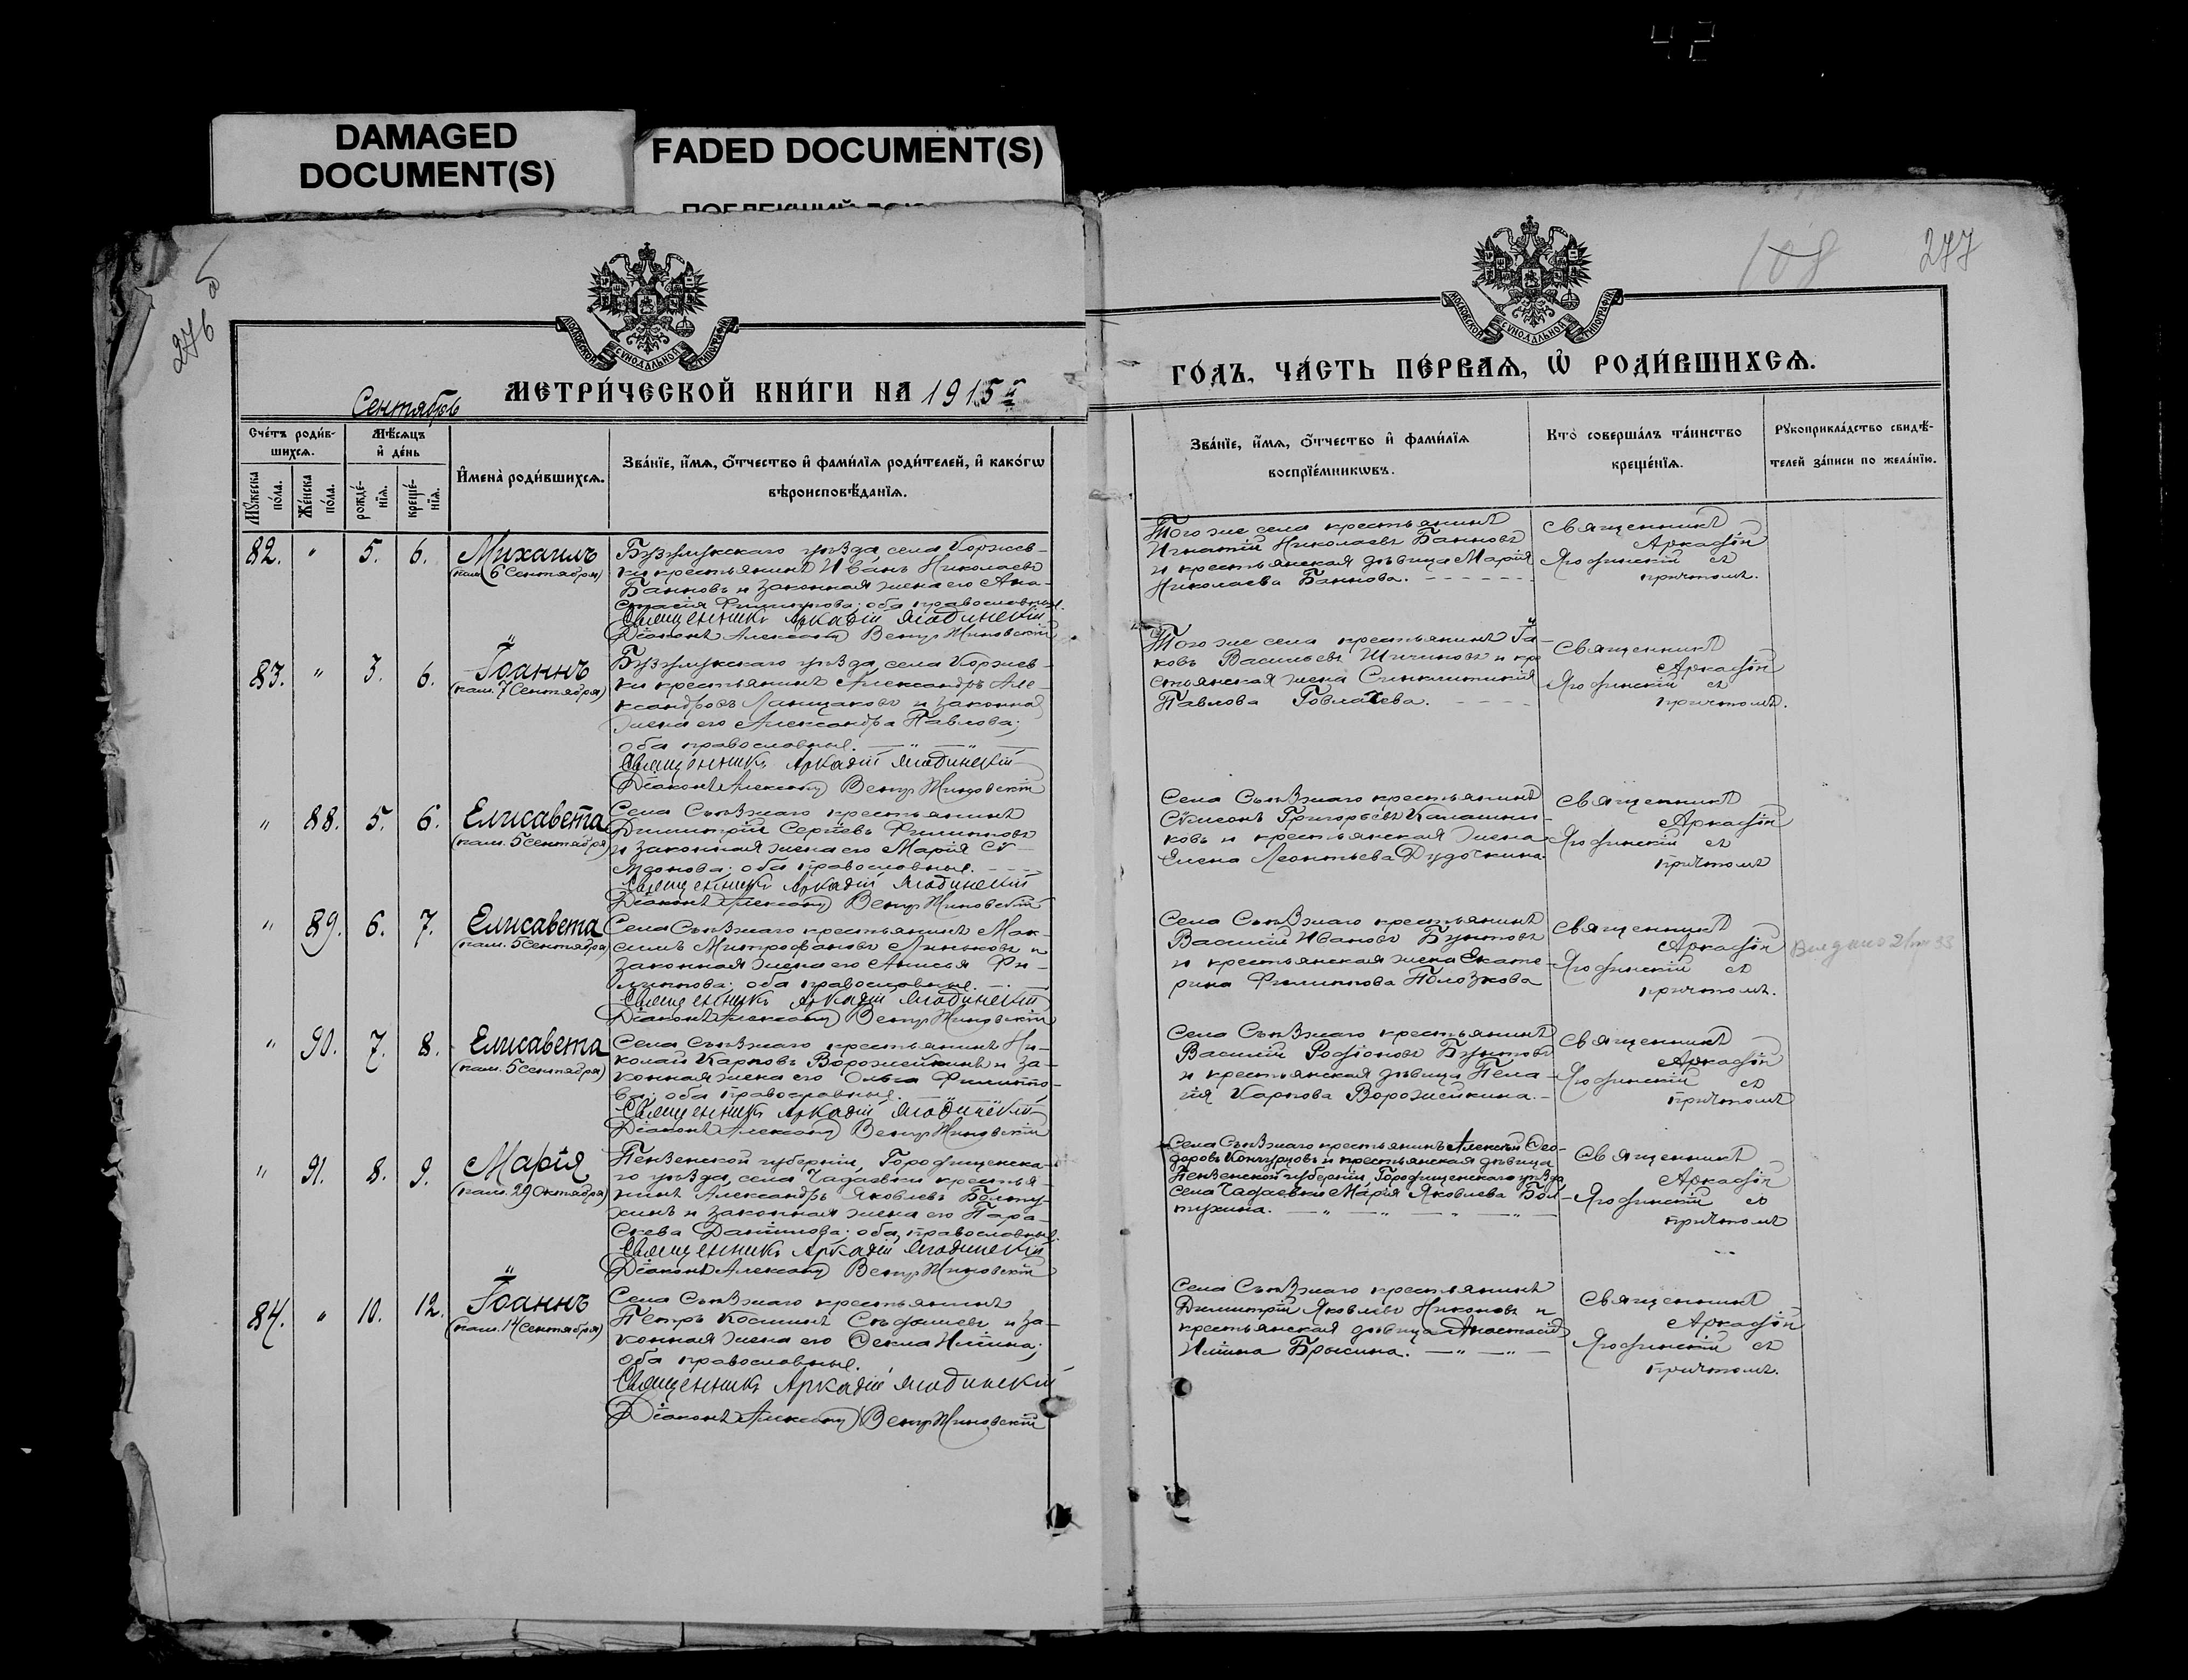 42
DAMAGED
DOCUMENT(S)
FADED DOCUMENT(S)
276 б
108
277
МОСКОВСКОЙ СѴНОДАЛЬНОЙ ТИПОГРАФІИ
МОСКОВСКОЙ СѴНОДАЛЬНОЙ ТИПОГРАФІИ
Сентябрь
МЕТРИ́ЧЕСКОЙ КНИ́ГИ НА 1915 й
ГО́ДЪ, ЧА́СТЬ ПЕ́РВАѦ, Ѡ҆ РОДИ́ВШИХСѦ.
Сче́тъ роди́в-
шихсѧ.
Мѣ́сѧцъ
и҆ де́нь
Мꙋ́жеска
по́ла.
Же́нска
по́ла.
рожде́-
нїѧ.
креще́-
нїѧ.
И҆мена̀ роди́вшихсѧ.
Зва́нїе, и҆́мѧ, ѻ҆́тчество и҆ фами́лїѧ роди́телей, и҆ како́гѡ
вѣроисповѣ́данїѧ.
Зва́нїе, и҆́мѧ, ѻ҆́тчество и҆ фами́лїѧ
воспрїе́мникѡвъ.
Кто̀ соверша́лъ та́инство
креще́нїѧ.
Рꙋкоприкла́дство свидѣ́-
телей за́писи по жела́нїю.
82. " 5. 6. Михаилъ
(пам. 6 Сентября)
Бузулукскаго уѣзда, села Коржев-
ки крестьянинъ Иванъ Николаевъ
Банновъ и законная жена его Ана-
стасія Филиппова; оба православные.
Священникъ Аркадій Ягодинскій
Діаконъ Александръ
Того же села крестьянинъ
Игнатій Николаевъ Банновъ
и крестьянская дѣвица Марія
Николаева Баннова.
Священникъ
Аркадій
Ягодинскій съ
причтомъ.
83. " 3. 6. Іоаннъ
(пам. 7 Сентября)
Бузулукскаго уѣзда, села Коржев-
ки крестьянинъ Александръ Але-
ксандровъ и законная
жена его Александра Павлова;
оба православные.
Священникъ Аркадій Ягодинскій
Діаконъ Александръ
Того же села крестьянинъ Іа-
ковъ Васильевъ и кре
стьянская жена Синклитикія
Павлова
Священникъ
Аркадій
Ягодинскій съ
причтомъ.
" 88. 5. 6. Елисавета
(пам. 5 Сентября)
Села Съѣзжаго крестьянинъ
Димитрій Сергіевъ Филипповъ
и законная жена его Марія Сѵ-
меонова; оба православные.
Священникъ Аркадій Ягодинскій
Діаконъ Александръ
Села Съѣзжаго крестьянинъ
Сѵмеонъ Григорьевъ Калашни-
ковъ и крестьянская жена
Елена Леонтьева Дудочкина.
Священникъ
Аркадій
Ягодинскій съ
причтомъ
" 89. 6. 7. Елисавета
(пам. 5 Сентября)
Села Съѣзжаго крестьянинъ Мак-
симъ Митрофановъ Миньковъ и
законная жена его Анисья Фи-
липпова; оба православные.
Священникъ Аркадій Ягодинскій
Діаконъ Александръ
Села Съѣзжаго крестьянинъ
Василій Ивановъ Бунтовъ
и крестьянская жена Екате-
рина Филиппова Полозкова
Священникъ
Аркадій
Ягодинскій съ
причтомъ.
" 90. 7. 8. Елисавета
(пам. 5 Сентября)
Села Съѣзжаго крестьянинъ Ни-
колай Карповъ Ворожейкинъ и за-
конная жена его Ольга Филиппо-
ва; оба православные.
Священникъ Аркадій Ягодинскій
Діаконъ Александръ
Села Съѣзжаго крестьянинъ
Василій Родіоновъ Бунтовъ
и крестьянская дѣвица Пела-
гія Карпова Ворожейкина.
Священникъ
Аркадій
Ягодинскій съ
причтомъ
" 91. 8. 9. Марія
(пам. 29 Октября)
Пензенской губерніи, Городищенска-
го уѣзда, села Чадаевки крестья-
нинъ Александръ Яковлевъ Болту-
хинъ и законная жена его Пара-
скева Даніилова; оба православные.
Священникъ Аркадій Ягодинскій
Діаконъ Александръ
Села Съѣзжаго крестьянинъ Алексѣй Ѳео-
доровъ и крестьянская дѣвица
Пензенской губерніи, Городищенскаго уѣзда,
села Чадаевки Марія Яковлева Бол-
тухина.
Священникъ
Аркадій
Ягодинскій со
причтомъ
84. " 10. 12. Іоаннъ
(пам. 14 Сентября)
Села Съѣзжаго крестьянинъ
Петръ Косминъ и за-
конная жена его Ѳекла Ильина;
оба православные.
Священникъ Аркадій Ягодинскій
Діаконъ Александръ
Села Съѣзжаго крестьянинъ
Димитрій Яковлевъ Никоновъ и
крестьянская дѣвица Анастасія
Ильина Брысина.
Священникъ
Аркадій
Ягодинскій съ
причтомъ.